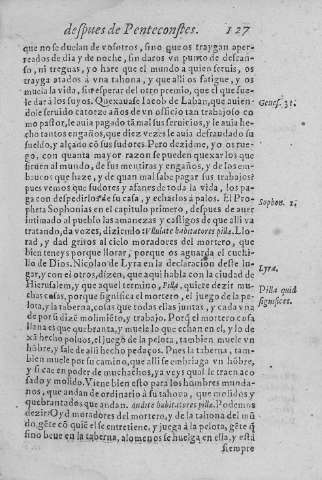 despues de Pentecostes. 127
que no se duelan de vosotros, sino que os traygan aper-
reados de dia y de noche, sin daros vn punto de descan-
so, ni treguas, yo hare que el mundo a quien seruis, os
trayga atados à vna tahona, y que alli os fatigue, y os
muela la vida, sin esperar del otro premio, que el que sue-
le dar à los suyos. Quexauase Iacob de Laban, que auien-
dole seruido catorze años de vn officio tan trabajoso co
mo pastor, le auia pagado tã mal sus seruicios, y le auia he-
cho tantos engaños, que diez vezes le auia defraudado su
sueldo, y alçado cõ sus sudores. Pero dezidme, yo os rue-
go, con quanta mayor razon se pueden quexar los que
siruen al mundo, de sus mentiras y engaños, y de los em-
baucos que haze, y de quan mal sabe pagar sus trabajos?
pues vemos que sudores y afanes de toda la vida, los pa-
ga con despedirlos de su casa, y echarlos à palos. El Pro-
pheta Sophonias en el capitulo primero, despues de auer
intimado al pueblo las amenazas y castigos de que alli va
tratando, da vozes, diziendo: Vlulate habitatores pilæ. Llo-
rad, y dad gritos al cielo moradores del mortero, que
bien teneys porque llorar, porque os aguarda el cuchi-
llo de Dios. Nicolao de Lyra en la declaracion deste lu-
gar, y con el otros, dizen, que aqui habla con la ciudad de
Hierusalem, y que aquel termino, Pila, quiere dezir mu-
chas cosas, porque significa el mortero, el juego de la pe-
lota, y la taberna, cosas que todas ellas juntas, y cada vna
de por si dizẽ molimiẽto, y trabajo. Porq̃ el mortero cosa
llana es que quebranta, y muele lo que echan en el, y lo de
xã hecho poluos, el juego de la pelota, tambien muele vn
hõbre, y sale de alli hecho pedaços. Pues la taberna, tam-
bien muele por su camino, que alli se embriaga vn hõbre,
y si cae en poder de muchachos, ya veys qual le traen aco
sado y molido. Viene bien esto para los hombres munda-
nos, que andan de ordinario à su tahona, que molidos y
quebrantados que andan. audite habitatores pilæ. Podemos
dezir: Oyd moradores del mortero, y de la tahona del mũ
do, gẽte cõ quiẽ el se entretiene, y juega à la pelota, gẽte q̃
sino beue en la taberna, alomenos se huelga en ella, y està
siempre
Genes. 31.
Sophon. 1.
Lyra.
Pila quid
significes.